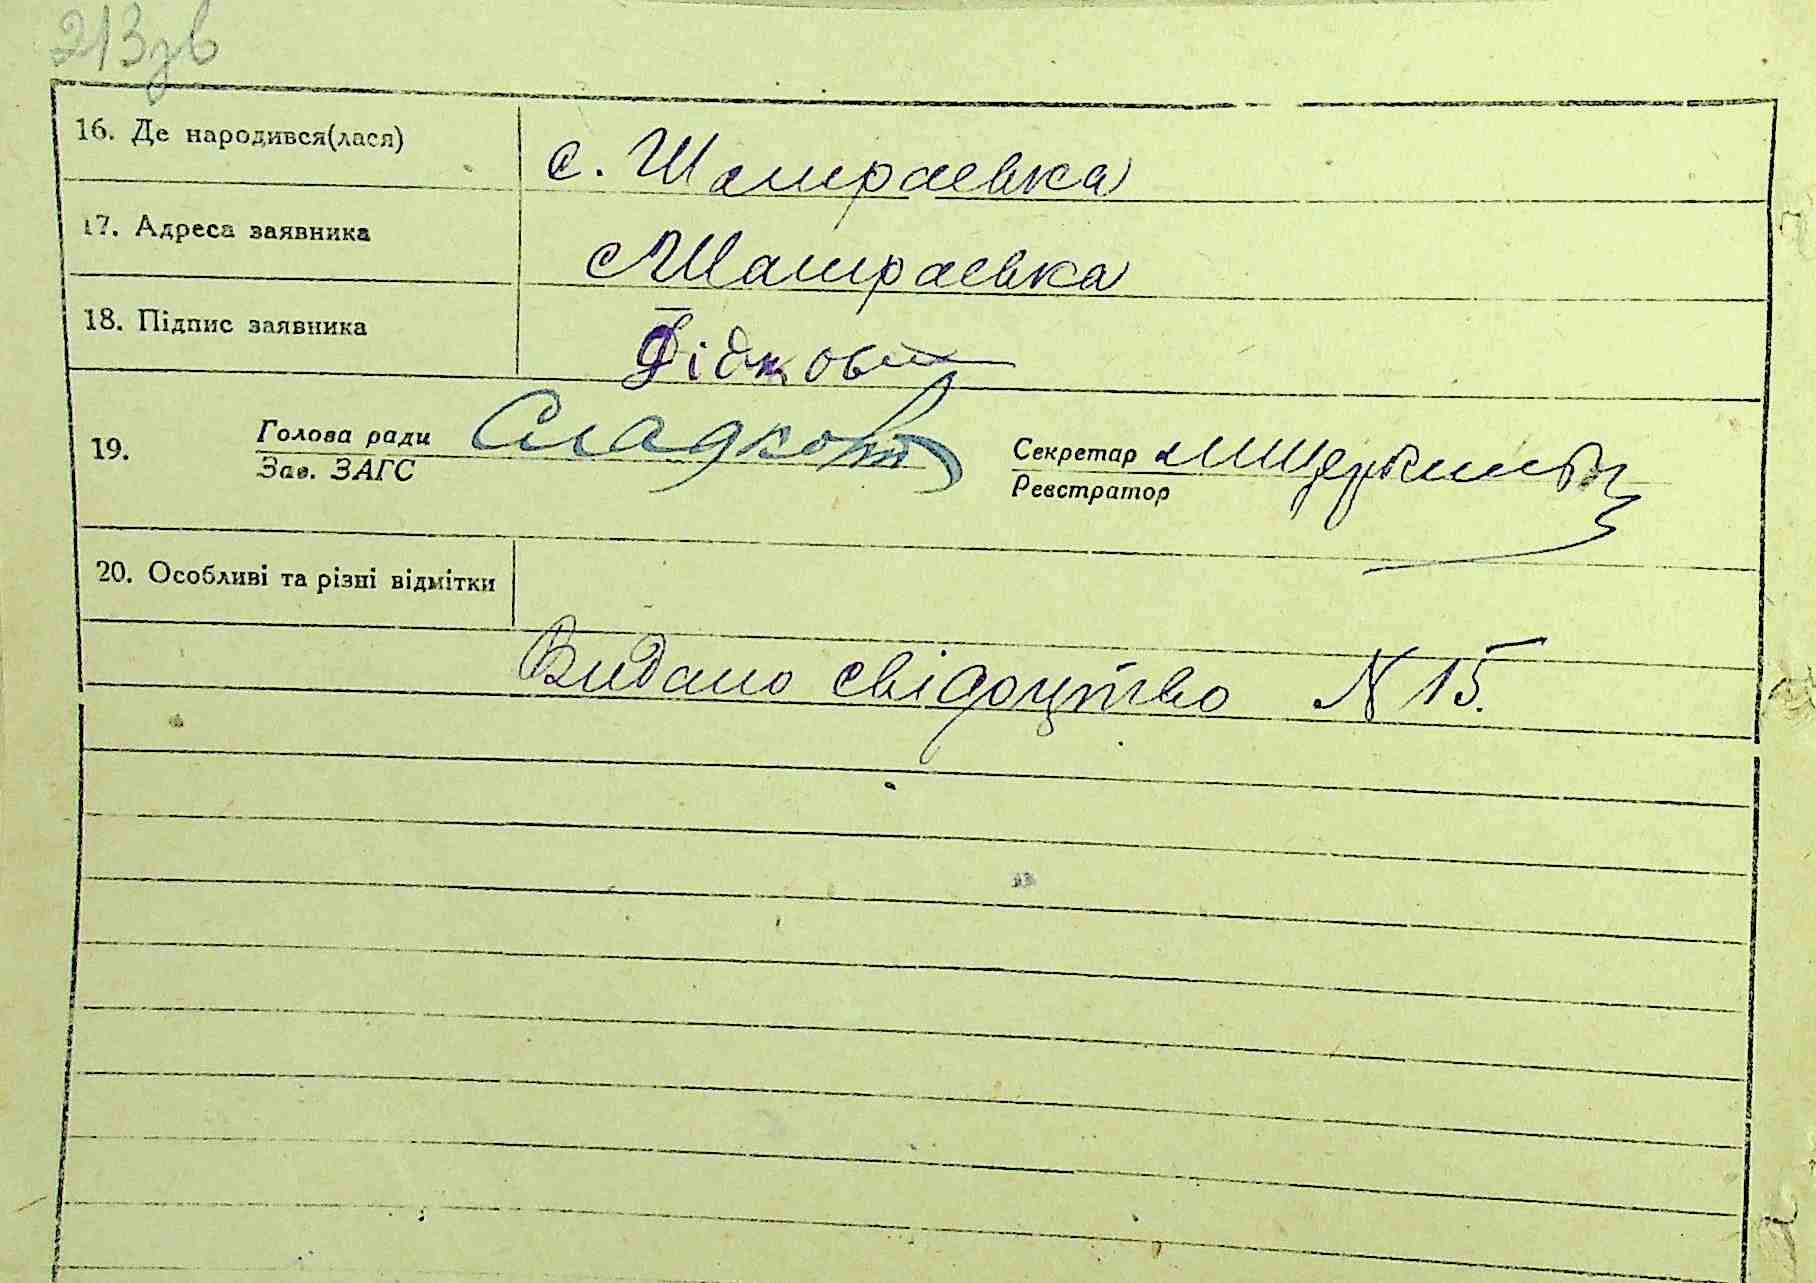 213зв
16. Де народився(лася) с. Шамраевка
17. Адреса заявника с Шамраевка
18. Підпис заявника
19. Голова ради Секретар
Зав. ЗАГС Реєстратор
20. Особливі та різні відмітки
Видано свідоцтво N 15.